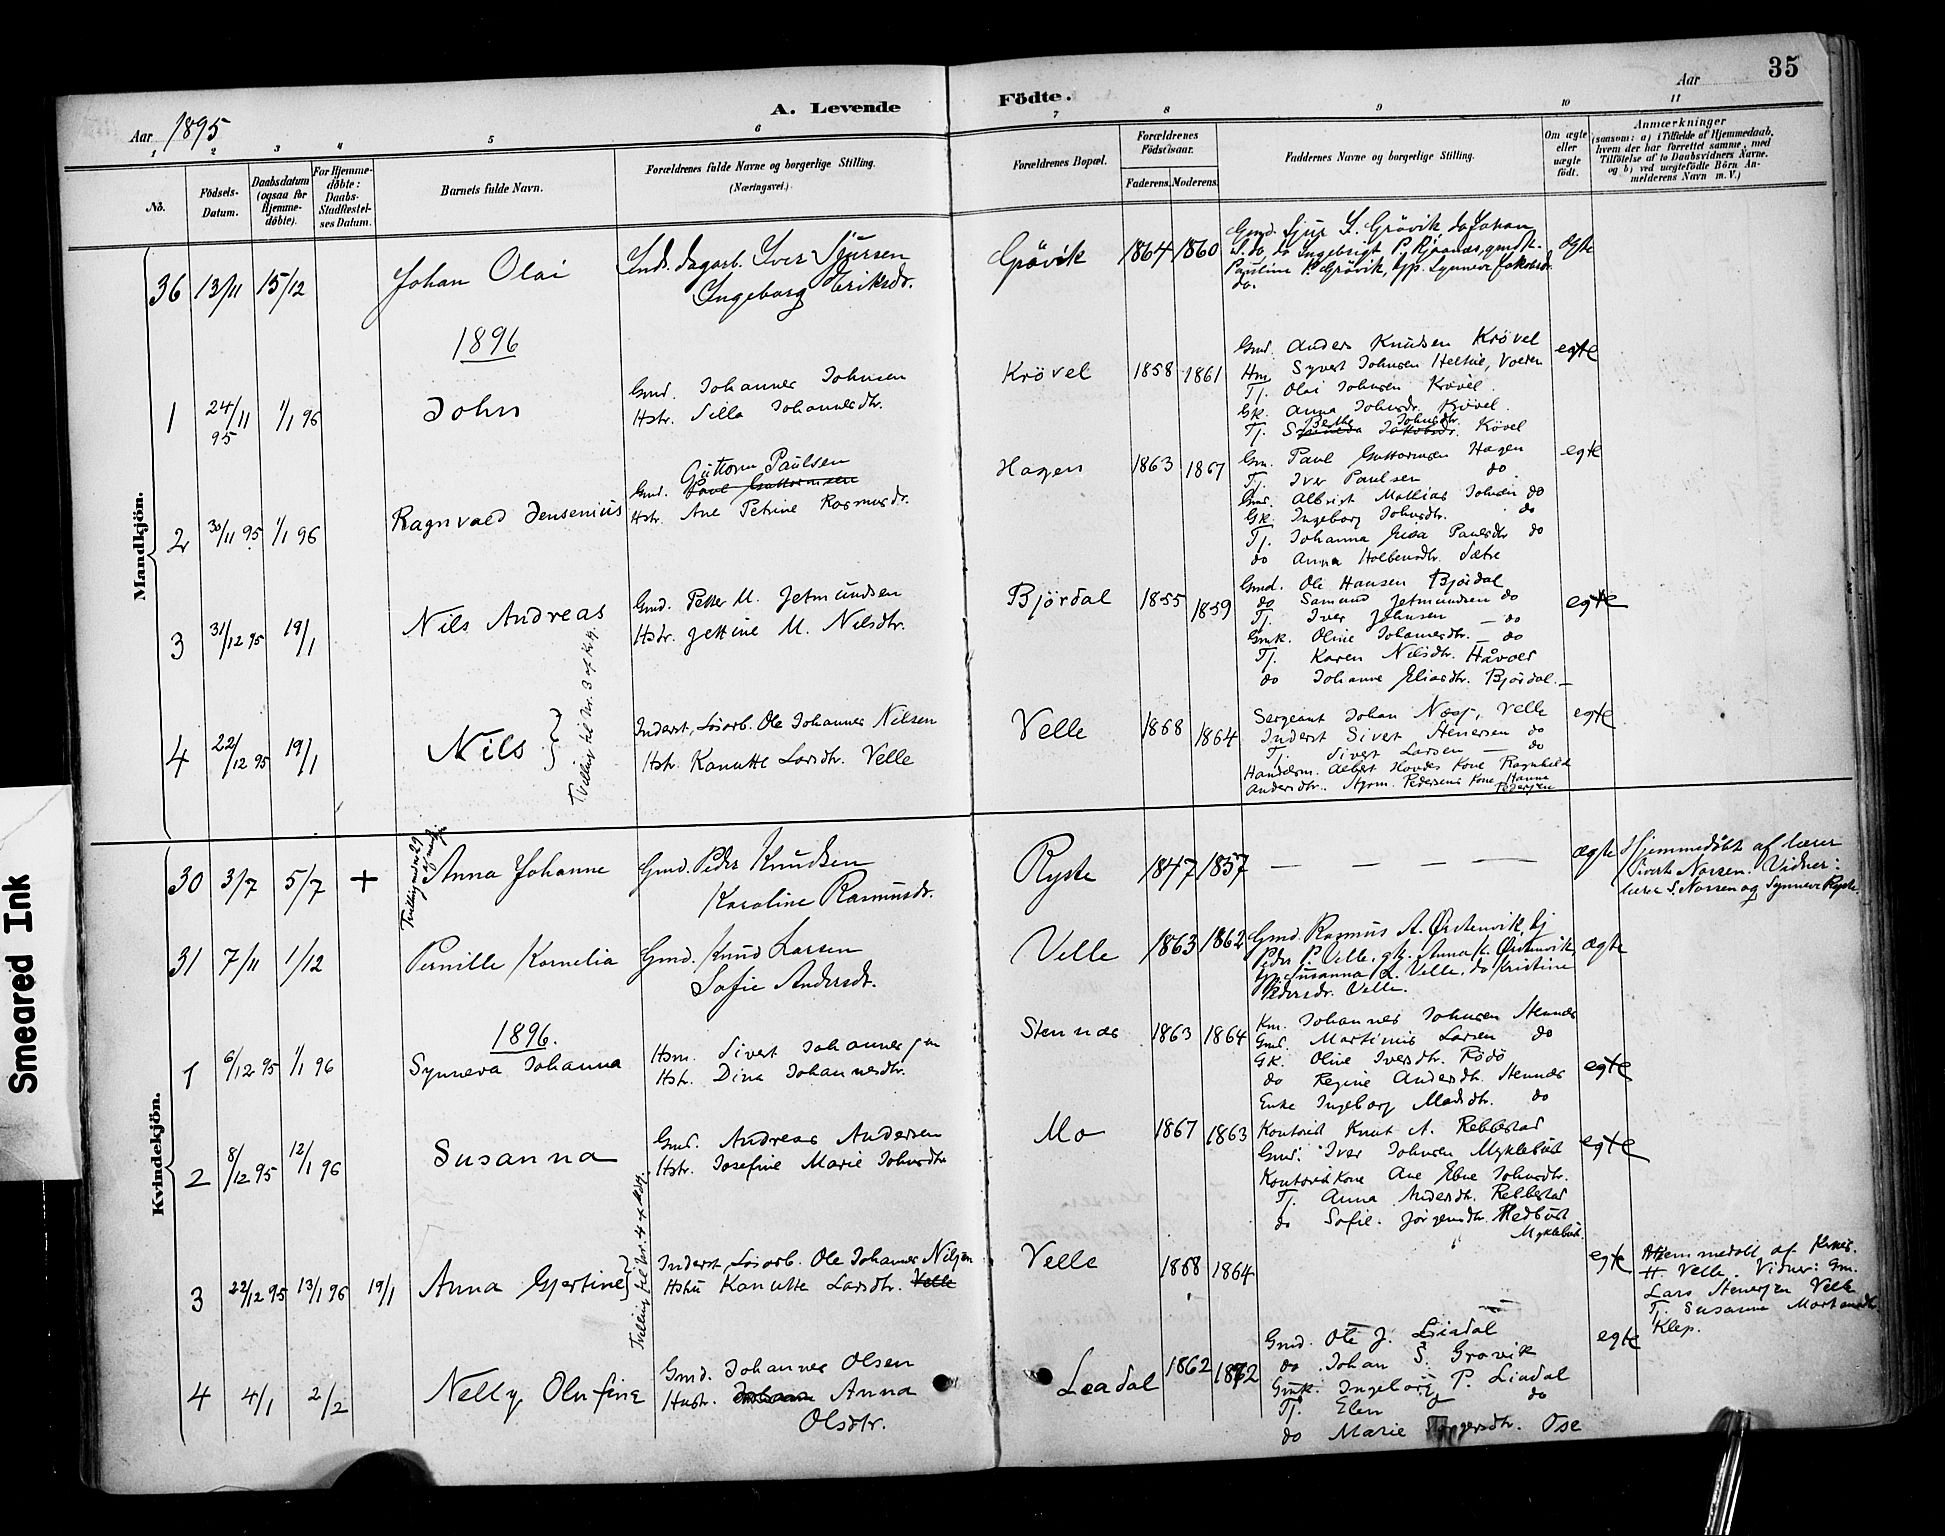 35
A. Levende Födte.
Aar 1895
Aar
1 2 3 4 5 6 7 8 9 10 11
No.
Födsels-Datum.
Daabsdatum (ogsaa for Hjemme-döbte).
For Hjemme-döbte: Daabs-Stadfestel-ses Datum.
Barnets fulde Navn.
Forældrenes fulde Navne og borgerlige Stilling. (Næringsvei.)
Forældrenes Bopæl.
Forældrenes Födselsaar.
Faderens. Moderens.
Faddernes Navne og borgerlige Stilling.
Om ægte eller uægte födt.
Anmærkninger
(saasom: a) i Tilfælde af Hjemmedaab, hvem der har forrettet samme, med Tilföielse af to Daabsvidners Navne, og b) ved uægtefödte Börn Anmelderens Navn m. V.)
Mandkjön.
36 13/11 15/12 Johan Olai
Inds. dagarb. Iver Sjursen
Ingeborg Eriksdr.
Grövik 1864 1860
Gmd. Sjur S. Grövik, do Johan
S. do, do Ingebrigt P. , gmdk.
Pauline P. Grövik, Synneve Jakobsdr.
do.
ægte
1896
1 24/11 95 1/1 96 John
Gmd. Johannes Johnsen
Hstr. Silla Johannesdtr.
Krövel 1858 1861
Gmd. Anders Knudsen Krövel
Hm. Syvert Johnsen Heltne, Voeren
Tj. Olai Johnsen Krövel.
Gk. Anna Johnsdr. Krövel.
Berthe Johnsdtr.
Tj. Jakobsdr. Kövel
egte
2 30/11 95 1/1 96 Ragnvald Jensenius
Guttorm Paulsen
Gmd. Paul Guttormsen
Hstr. Ane Petrine Rasmusdr.
Hagen 1863 1867
Gm. Paul Guttormsen Hagen
Tj. Iver Paulsen do
Gmd. Albrigt Mathias Johnsen do
Gk. Ingeborg Johnsdtr. do
Tj. Johanna Paulsdtr do
do Anna Holbensdtr. Sætre
egte
3 31/12 95 19/1 Nils Andreas
Gmd. Petter M. Jetmundsen
Hstr. Jettine M. Nilsdtr.
Björdal 1855 1859
Gmd. Ole Hansen Björdal
do Samund Jetmundsen do
Tj. Iver Johnsen – do
Gmk. Oline Johannesdtr. – do
Tj. Karen Nilsdtr. Håvoll
do Johanne Eliasdtr. Björdal. –
egte
4 22/12 95 19/1 Nils
Tvilling til Nr. 3 af Kvkj.
Inderst, Lösarb. Ole Johannes Nilsen
Hstr. Kanutte Larsdtr. Velle
Velle 1868 1864
Sergeant Johan Næss, Velle
Inderst Sivert Stenersen do
Tj. Sivert Larsen – do
Handelsm. Albert Hovdes Kone Ragnhild
Andersdtr. Styrm. Pedersens Kone Hanna
Pedersen
egte
Kvindekjön.
30 3/7 5/7 + Anna Johanne
Tvilling med 29
Gmd. Peder Knudsen
Karoline Rasmusdr.
Ryste 1847 1857 — — — —
ægte
Hjemmedöbt af lærer
Sivert Norsen. Vidner:
lærer S. Norsen og Synneve Ryste.
31 7/11 1/12 Pernille Kornelia
Gmd. Knud Larsen
Sofie Andersdr.
Velle 1863 1862
Gmd. Rasmus A. Ørstenvik, tj
Peder P. Velle, gk. Anna K. Ørstenvik,
Susanna L. Velle, do Kristine
Pedersdr. Velle.
ægte
1896.
1 6/12 95 1/1 96 Synneva Johanna
Hsm. Sivert Johannessen
Hst. Dina Johannesdtr.
Stennes 1863 1864
Km. Johannes Johnsen Stennes
Gmd. Martinus Larsen do
Gk. Oline Iversdtr. Rödö
do Regine Andersdtr. Stennes
Enke Ingeborg Madsdtr. do
egte
2 8/12 95 12/1 96 Susanna
Gmd. Andreas Andersen
Hstr. Josefine Marie Johnsdtr
Mo 1867 1863
Kontorist Knut A. Rebbestad
Gmd. Iver Johnsen Myklebust
Kontorist Kone Ane Johnsdtr.
Tj. Anna Andersdtr. Rebbestad
do Sofie. Jörgensdtr. Nedbust
Myklebust.
egte
3 22/12 95 13/1 96 19/1 Anna Gjertine
Tvilling til Nr. 4 af Mkj.
Inderst, Lösarb. Ole Johannes Nilsen
Hstru Kanutte Larsdtr. Velle
Velle 1868 1864
egte
Hjemmedöbt af
H. Velle. Vidner: Gm.
Lars Stenersen Velle
Tj. Susanne Mortensdtr.
Klep.
4 4/1 2/2 Nelly Olufine
Gmd. Johannes Olsen
Hustr. Anna
Olsdtr.
Leadal 1862 1872
Gmd. Ole J. Liadal
do Johan S. Grøvik
Gmk. Ingeborg P. Liadal
Tj. Elen do
do Marie Ose
egte
Smeared Ink